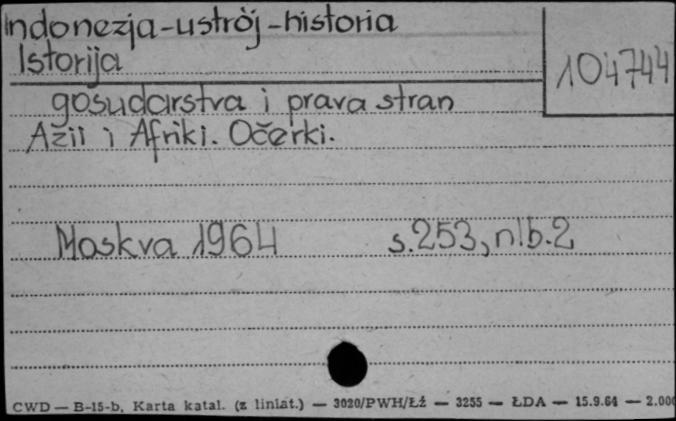 Indonezja-ustrój-historia
Istorija
104744
gosudarstva i prava stran
Azii i Afriki. Očerki.
Moskva 1964 s.253, nlb.2
CWD — B-15-b, Karta katal. (z liniat.) — 3020/PWH/Łż — 3255 — ŁDA — 15.9.64 — 2.000